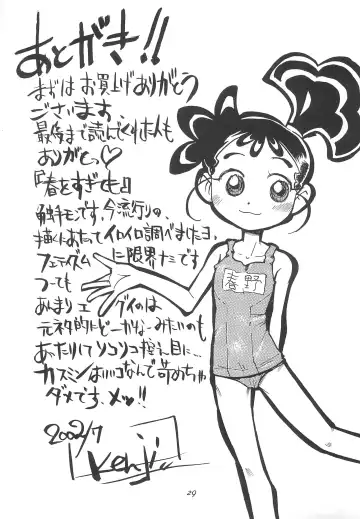 あとがき!!
まずはお買上げありがとう
ございます。
最後まで読んでくれた人も
ありがとっ♡
『春をすぎても』
解禁モノです、今流行りの、
描くにあたってイロイロ調べましたヨ、
フェチズムに限界ナシです
つっても
あんまりエグイのは
元ネタ的にどーかなーみたいのも
あったりしてソコソコ控え目に…
カスミンはいいコなんで苛めちゃ
ダメです、メッ!!
2002/7
Kenji
春野
29